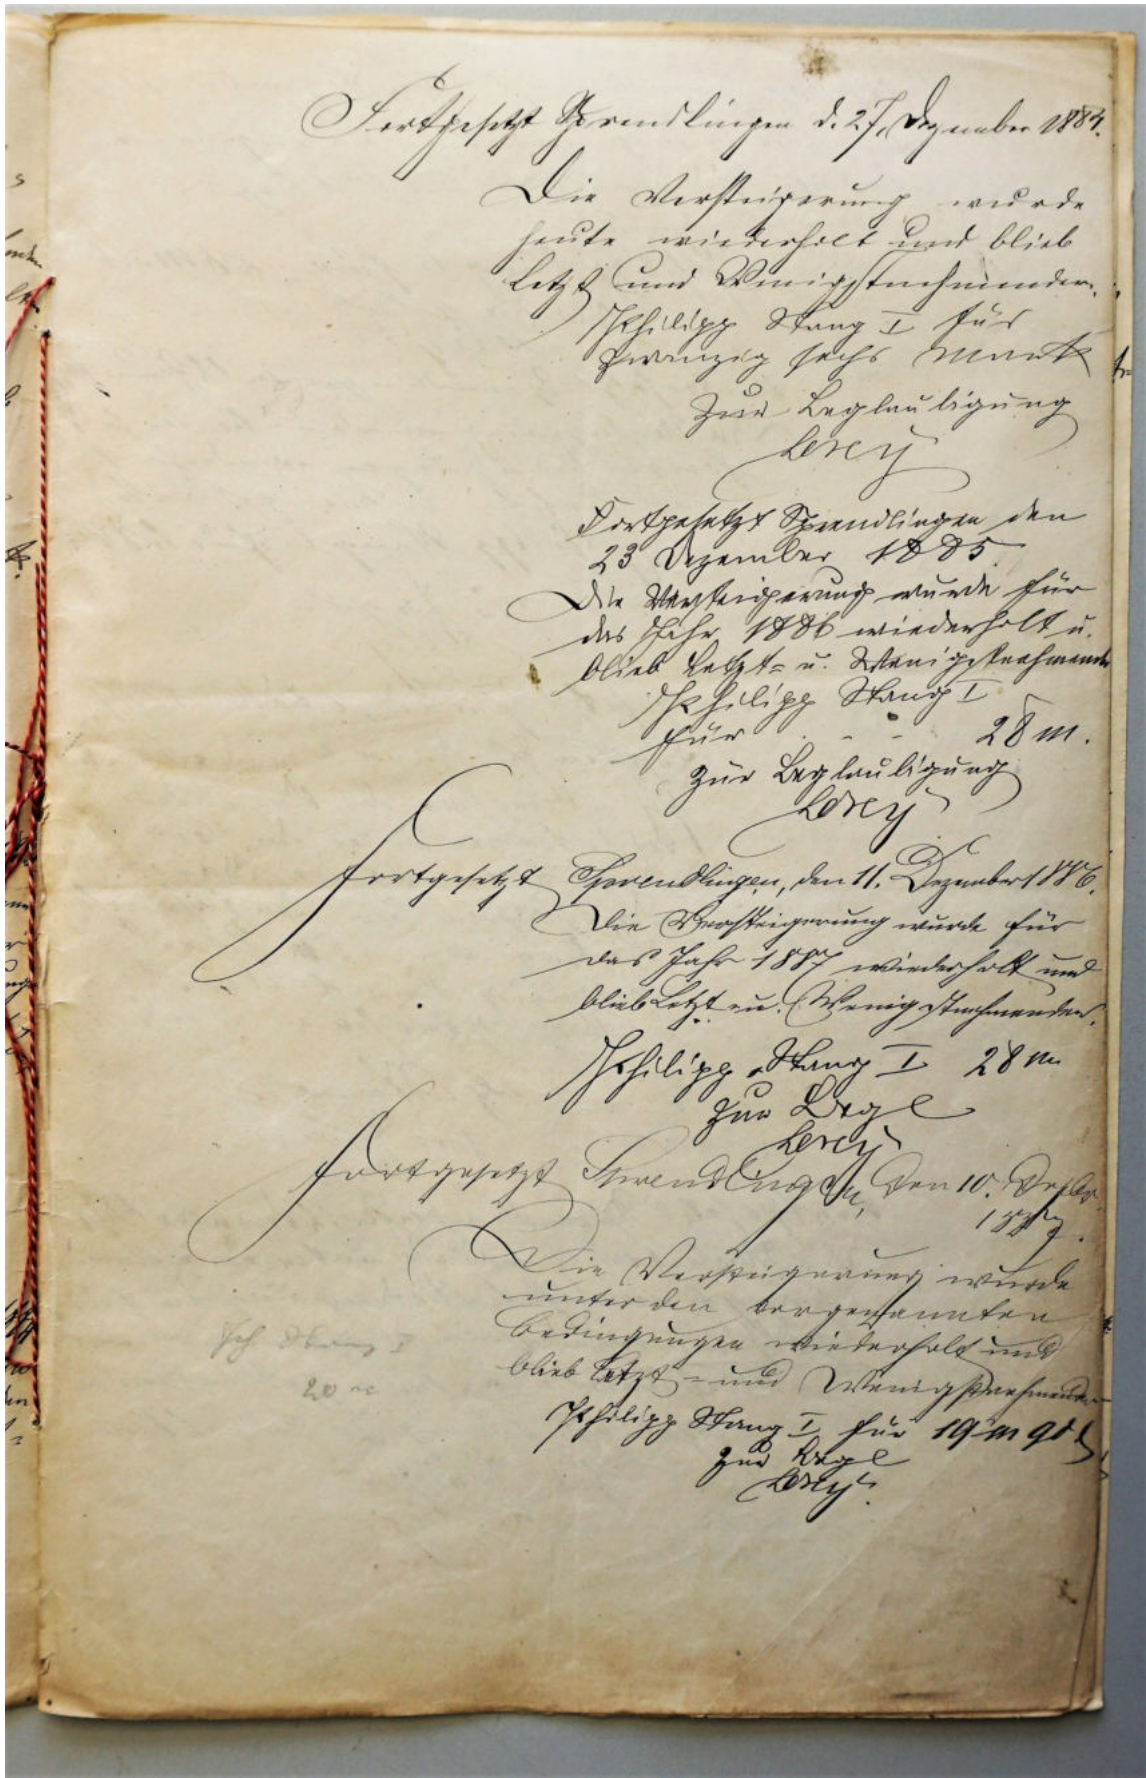 Fortgesetzt Sprendlingen d. 27. Dezember 1884.
Die Versteigerung wurde
heute wiederholt und blieb
Letzt und Wenigstnehmender
Philipp Stang I für
zwanzig sechs Mark
Zur Beglaubigung
Lorey
Fortgesetzt Sprendlingen den
23 Dezember 1885.
Die Versteigerung wurde für
das Jahr 1886 wiederholt u.
blieb Letzt- u. Wenigstnehmender
Philipp Stang I
für . - - 28 M.
Zur Beglaubigung
Lorey
Fortgesetzt Sprendlingen, den 11. Dezember 1886.
Die Versteigerung wurde für
das Jahr 1887 wiederholt und
blieb Letzt- u. Wenigstnehmender.
Philipp Stang I 28 M
Zur Begl
Lorey
Fortgesetzt Sprendlingen, den 10. Dezbr.
1887.
Die Versteigerung wurde
unter den vorgenannten
Bedingungen wiederholt und
blieb Letzt- und Wenigstnehmender
Philipp Stang I für 19 M 90 ₰
Zur Begl
Lorey.
Stang I
20 M